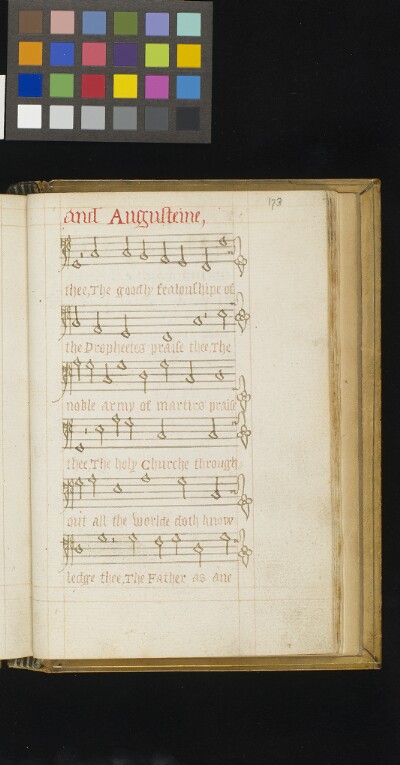 173
and Augusteine,
thee, The goodly fealouſhipe of
the Prophetes praiſe thee. The
noble army of martirs praiſe
thee The holy Churche through
out all the worlde doth know
ledge thee, The Father as ane